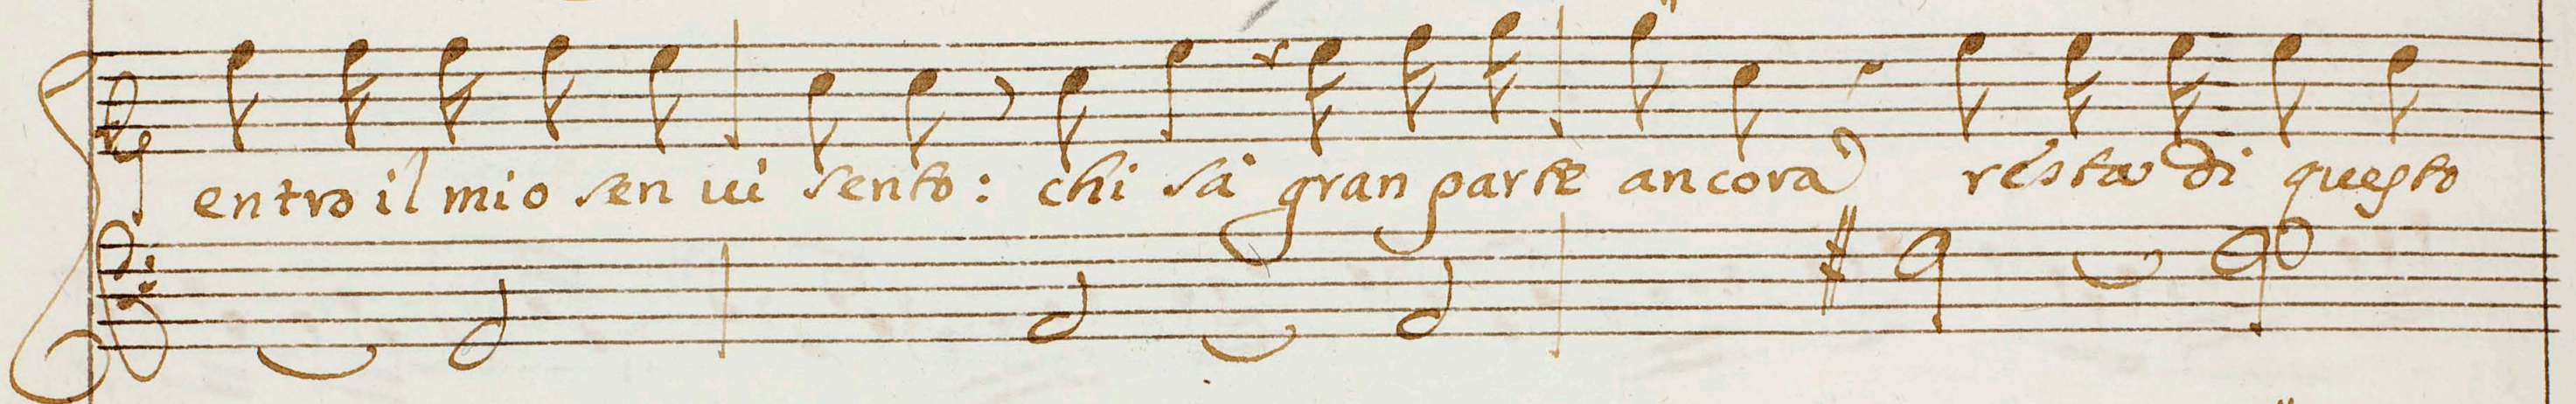 entro il mio sen vi sento: chi sà gran parte ancora resta di questo